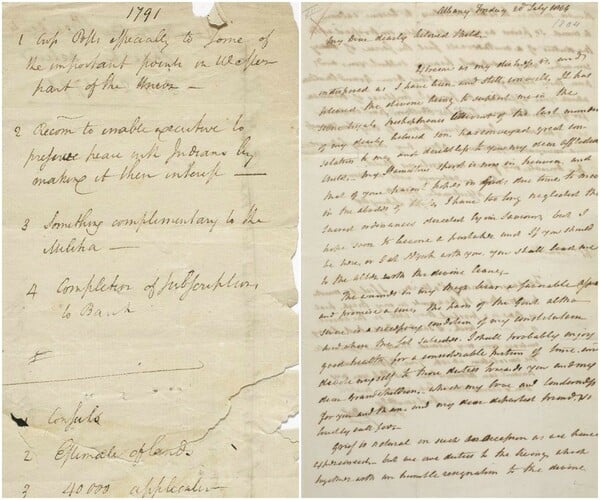 1791
1 Posts especially to some of
the important points in Western
part of the Union —
2 Recom to enable executive to
preserve peace with Indians by
making it their interest —
3 Something complimentary to the
Militia —
4 Completion of subscriptions
to Bank
1 Consuls
2 Estimate of lands
3 40000
Albany Friday 20 July 1804
1804
My Dear dearly beloved
as my distress is and
indisposed as I have been and still
pleased the divine being to support me in the
account of the last moments
of my dearly beloved son, has conveyed great con
solation to me, and doubtless to you my dear afflicted
Child. My Hamilton's spirit is now in heaven, and
that of your parent hopes in due time to meet
in the abodes of I have too long neglected the
sacred ordinances directed by our Saviour, but I
hope soon to become a partaker and if you should
be here, or I at with you, you shall lead me
to the altar with the divine leave.
The wounds in my bear a favorable appea
and promise a cure, the pain of the Gout altho
is a condition of my constitution
and when the subsides, I shall probably enjoy
good health for a considerable portion of time, and
devote myself to those duties towards you and my
dear Grandchildren, which my love and tenderness
for you and them, and my dear departed friend, so
loudly call for.
Grief is natural on such an occasion as we have
experienced, but we owe duties to the living, which
together with an humble resignation to the divine